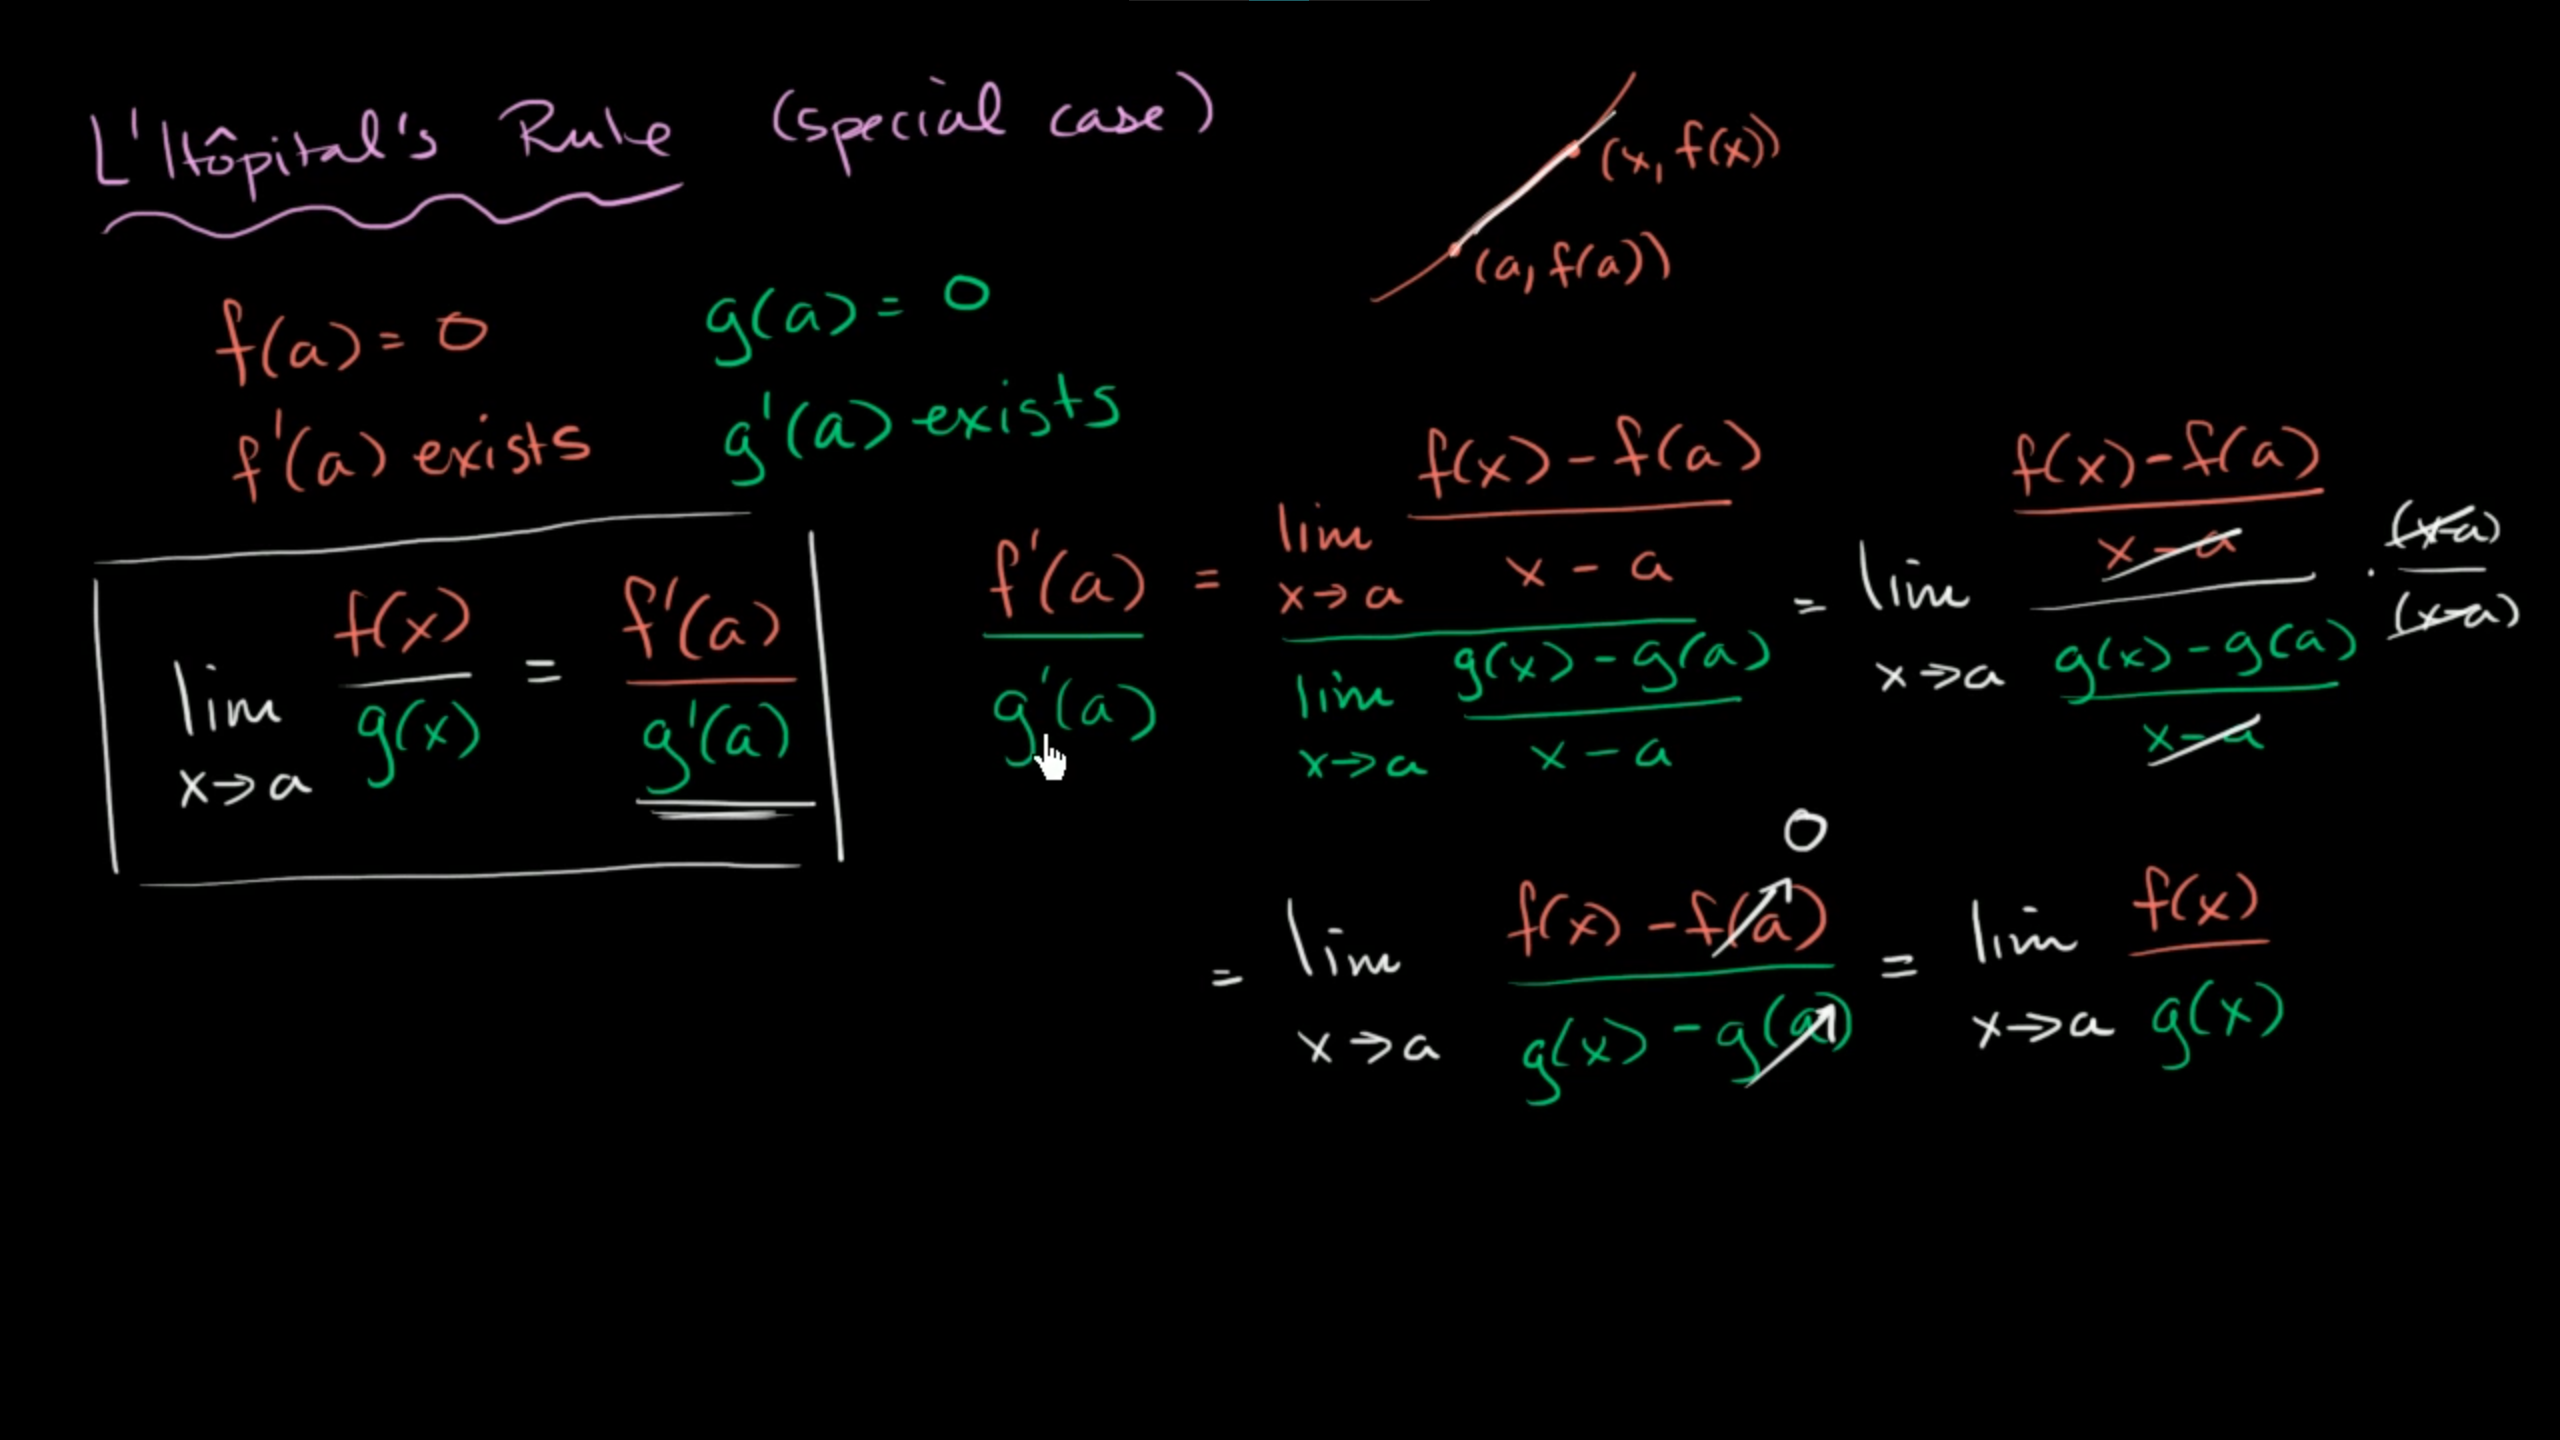 L'Hôpital's Rule (special case)
(x, f(x))
(a, f(a))
f(a) = 0
g(a) = 0
f'(a) exists
g'(a) exists
lim x→a f(x)/g(x) = f'(a)/g'(a)
f'(a)/g'(a) = (lim x→a (f(x) - f(a))/(x - a))/(lim x→a (g(x) - g(a))/(x - a)) = lim x→a ((f(x) - f(a))/(x - a))/((g(x) - g(a))/(x - a)) · (x-a)/(x-a)
0
= lim x→a (f(x) - f(a))/(g(x) - g(a)) = lim x→a f(x)/g(x)